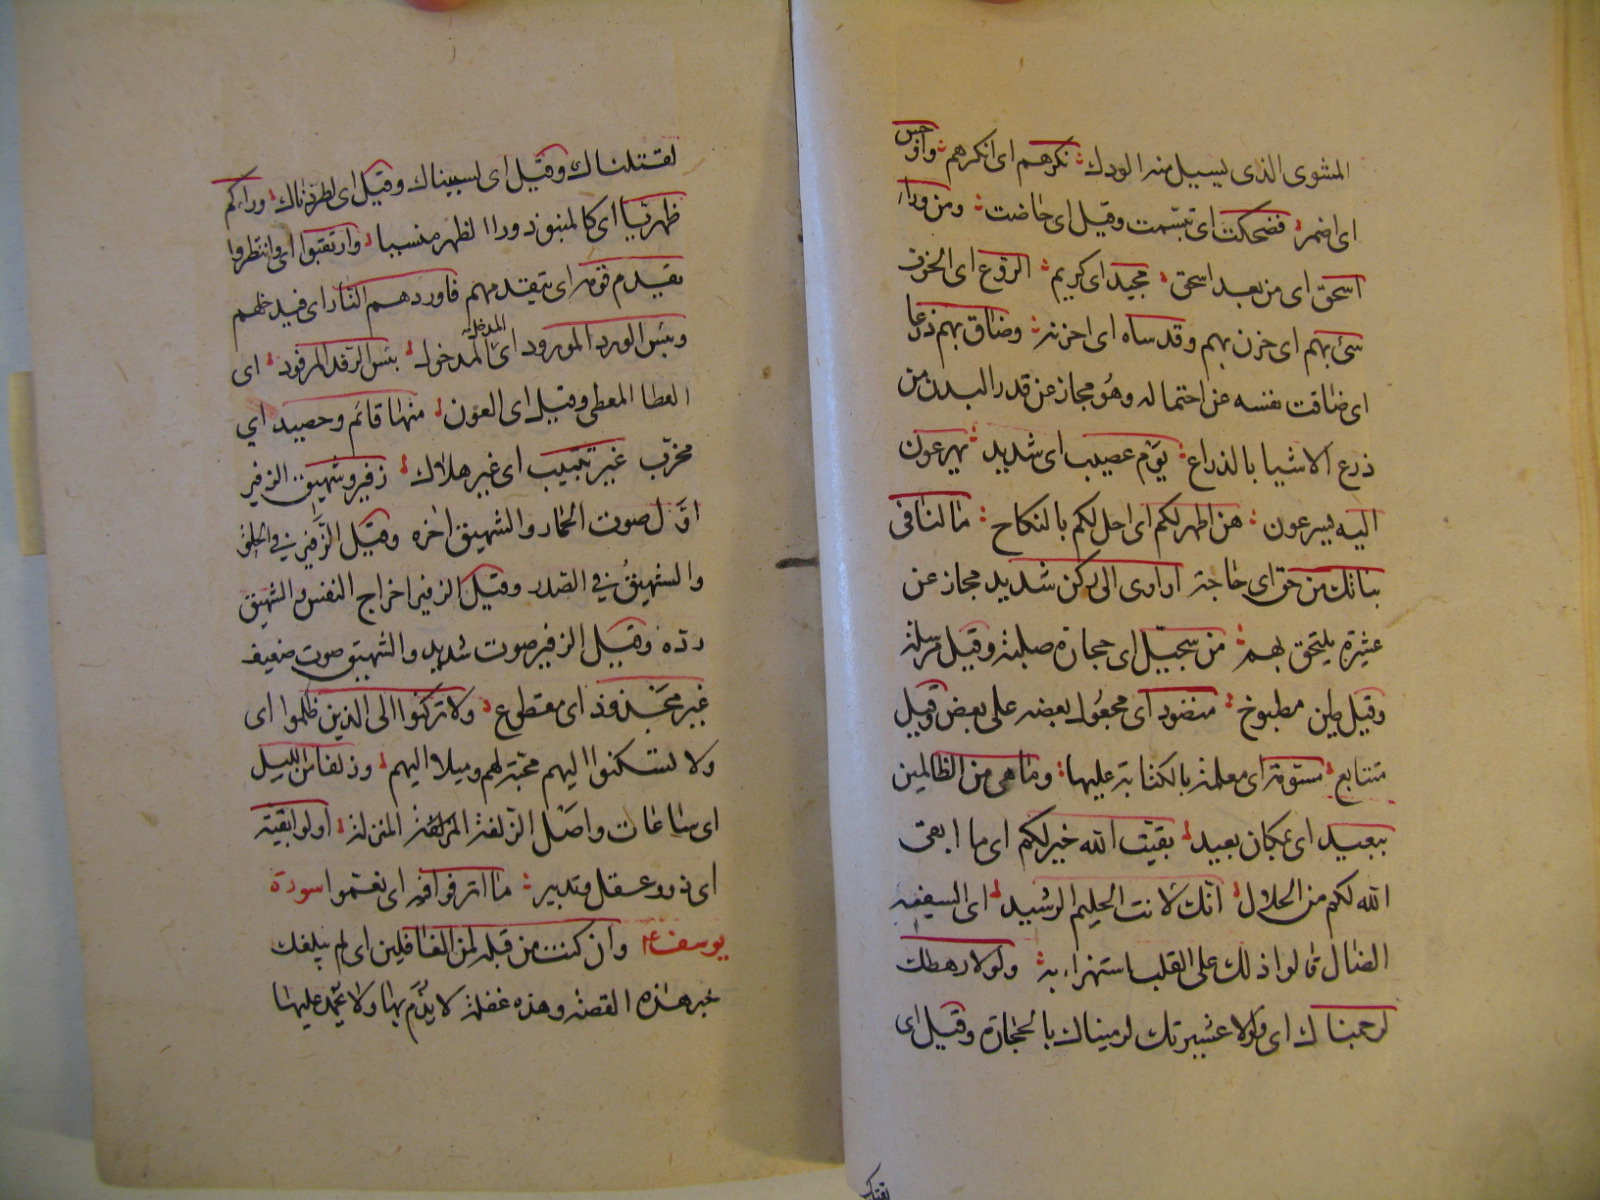 المشوى الذى يسيل منه الودك نكرهم اى انكرهم واوجس
اى اضمر فضحكت اى تبسّمت وقيل اى حاضت ومن وراء
اسحق اى من بعد اسحق مجيد اى كريم الروع اى الخوف
سئ بهم اى حزن بهم وقد ساه اى احزنه وضاق بهم ذرعا
اى ضاقت نفسه عن احتماله وهو مجاز عن قدر البدن من
ذرع الاشيا بالذراع يوم عصيب اى شديد يهرعون
اليه يسرعون هن اطهر لكم اى احل لكم بالنكاح ما لنا فى
بناتك من حق اى حاجة او اوى الى ركن شديد مجاز عن
عشيرة يلتحق بهم من سجيل اى حجارة صلبة وقيل مرسلة
وقيل طين مطبوخ منضود اى مجعول بعضه على بعض وقيل
متتابع مسوّمة اى معلمة بالكتابة عليها وما هى من الظالمين
ببعيد اى بمكان بعيد بقيت الله خير لكم اى ما ابقى
الله لكم من الحلال انك لانت الحليم الرشيد اى السفيه
الضال قالوا ذلك على القلب استهزاء به ولولا رهطك
لرجمناك اى ولولا عشيرتك لرميناك بالحجارة وقيل اى
لقتلناك وقيل اى لسبيناك وقيل اى لطردناك وراءكم
ظهريّا اى كالمنبوذ ورا الظهر منسيا وارتقبوا اى وانتظروا
يقدم قومه اى يتقدمهم فاوردهم النار اى فيدخلهم
وبئس الورد المورود اى المدخل المدخول بئس الرفد المرفود اى
العطا المعطى وقيل اى العون منها قائم وحصيد اي
مخرّب غير تتبيب اى غير هلاك زفير وشهيق الزفير
اوّل صوت الحمار والشهيق اخره وقيل الزّفير فى الحلق
والشهيقُ فى الصدر وقيل الزفير اخراج النفس والشهيق
ردّه وقيل الزفير صوت شديد والشهيق صوت ضعيف
غير مجذوذ اى مقطوع ولا تركنوا الى الذين ظلموا اى
ولا تستكنوا اليهم محبة لهم وميلا اليهم وزلفا من الليل
اى ساعات واصل الزلفة المنزلة اولوا بقية
اى ذوو عقل وتدبير ما اترفوا فيه اى نعّموا سورة
يوسف عم وان كنت من قبله لمن الغافلين اى لم يبلغك
خبر هذه القصة وهذه غفلة لا يذّم بها ولا يحمد عليها